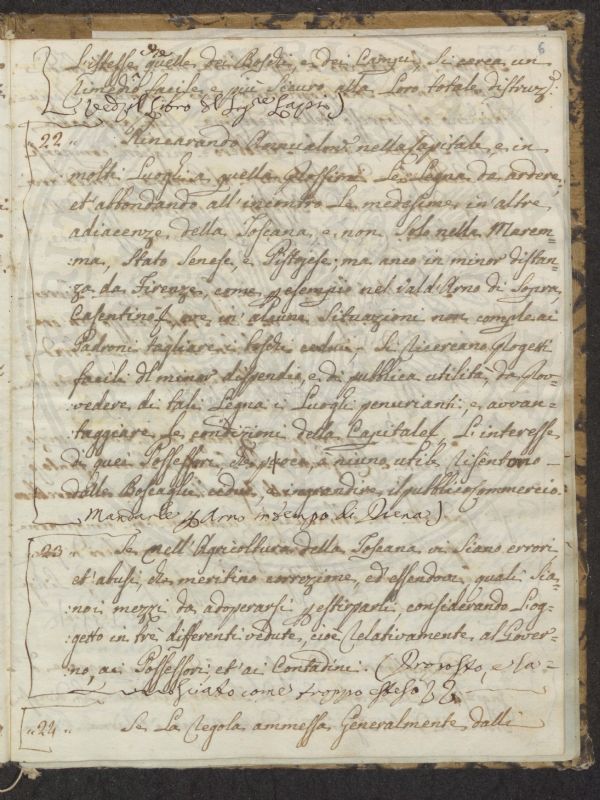 6
l'istesse quelle dei Boschi, e dei Campi, si cerca un
rimedio facile, e più sicuro alla loro totale distruz.e
(Vedi il Libro del Sig.re Lapi)
22 Rincarando Annualm.te nella Capitale, e in
molti Luoghi a quella le Legna da ardere,
et abbondando all'incontro le medesime in altre
adiacenze della Toscana, e non solo nella Marem-
:ma, Stato Senese, e Pistojese; ma anco in minor distan-
za da Firenze, come p esempio nel Val d'Arno di Sopra,
Casentino &, ove in alcune Situazioni non comple ai
Padroni tagliare i boschi cedui, si ricercano Progetti
facili di minor dispendio, e di pubblica utilità, da Prov-
:vedere di tali Legna i Luoghi penurianti, e avvan-
taggiare le condizioni della Capitale, l'interesse
di quei Possessori, che poca, o niuna utile risentono
delle Boscaglie cedue, e ingrandire il pubblico Commercio
Mandarle p Arno in tempo di Piena)
23 Se nell'Agricoltura della Toscana vi siano errori
et abusi, che meritino correzione, ed essendovi, quali sia-
:no i mezzi da adoperarsi p estirparli, considerando l'og-
:getto in tre differenti vedute, cioè relativamente al Gover-
no, ai Possessori, et ai Contadini. (Proposto, e la-
sciato come troppo esteso
24 Se la regola ammessa generalmente dalli